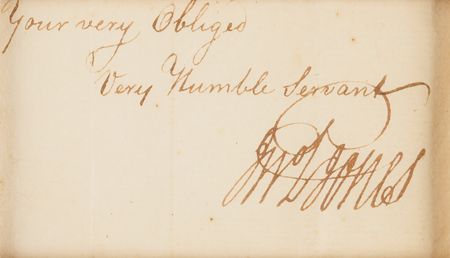 Your very Obliged
Very Humble Servant
Jno Jones